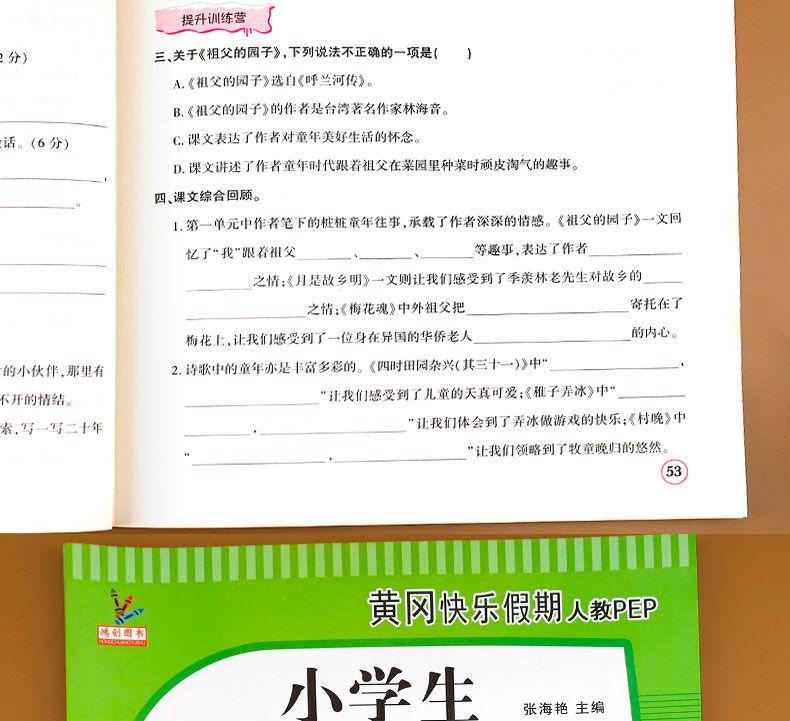 2分)
话。(6分)
,
。
的小伙伴,那里有
不开的情结。
索,写一写二十年
提升训练营
三、关于《祖父的园子》,下列说法不正确的一项是(  )
A.《祖父的园子》选自《呼兰河传》。
B.《祖父的园子》的作者是台湾著名作家林海音。
C. 课文表达了作者对童年美好生活的怀念。
D. 课文讲述了作者童年时代跟着祖父在菜园里种菜时顽皮淘气的趣事。
四、课文综合回顾。
1. 第一单元中作者笔下的桩桩童年往事,承载了作者深深的情感。《祖父的园子》一文回
忆了“我”跟着祖父______、______、______等趣事,表达了作者__________
______之情;《月是故乡明》一文则让我们感受到了季羡林老先生对故乡的____
__________之情;《梅花魂》中外祖父把______________寄托在了
梅花上,让我们感受到了一位身在异国的华侨老人______________的内心。
2. 诗歌中的童年亦是丰富多彩的。《四时田园杂兴(其三十一)》中“____________,
____________”让我们感受到了儿童的天真可爱;《稚子弄冰》中“______
______,____________”让我们体会到了弄冰做游戏的快乐;《村晚》中
“____________,____________”让我们领略到了牧童晚归的悠然。
53
黄冈快乐假期 人教PEP
鸿创图书
HONGCHUANGTUSHU
小学生
张海艳 主编